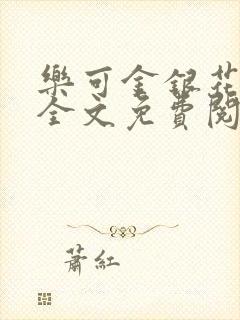 樂可金銀花
全文免費閱
蕭紅